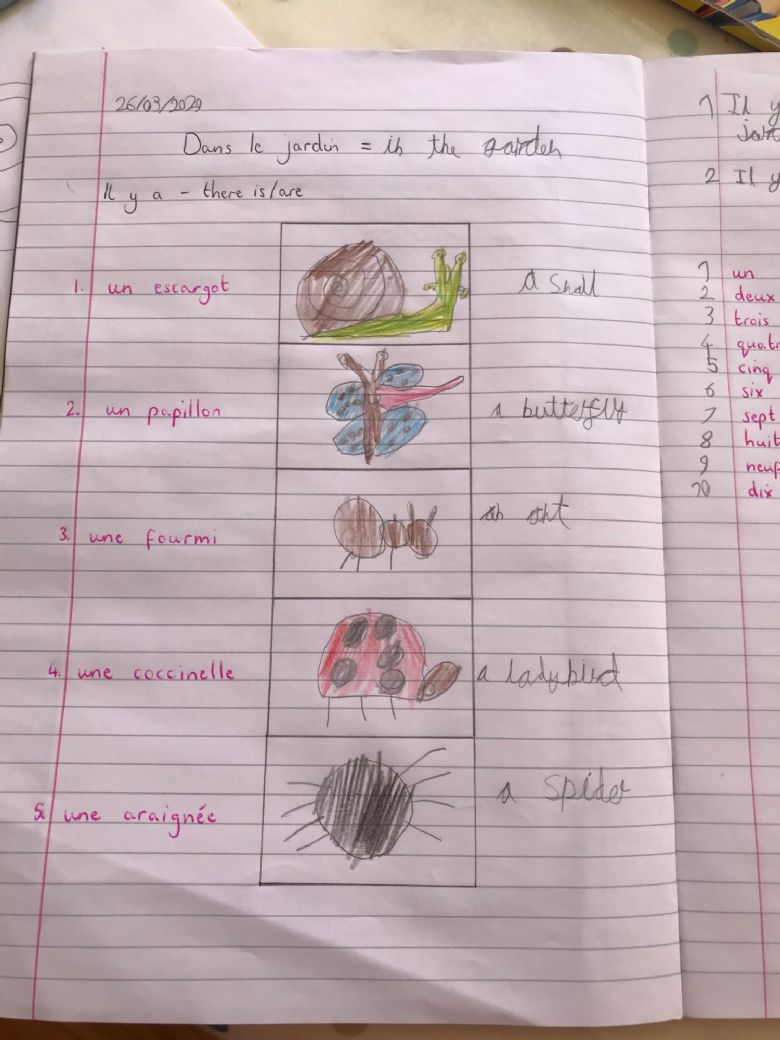 26/03/2020
Dans le jardin = in the garden
Il y a - there is/are
1. un escargot a snail
2. un papillon a butterfly
3. une fourmi an ant
4. une coccinelle a ladybird
5. une araignée a spider
1 Il y
jard
2 Il y
1 un
2 deux
3 trois
4 quatr
5 cinq
6 six
7 sept
8 huit
9 neuf
10 dix